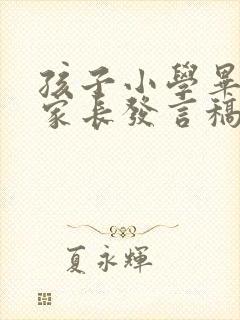 孩子小學畢
家長發言稿
夏永輝